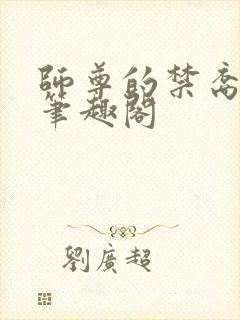 師尊的禁脔
筆趣閣
劉廣超